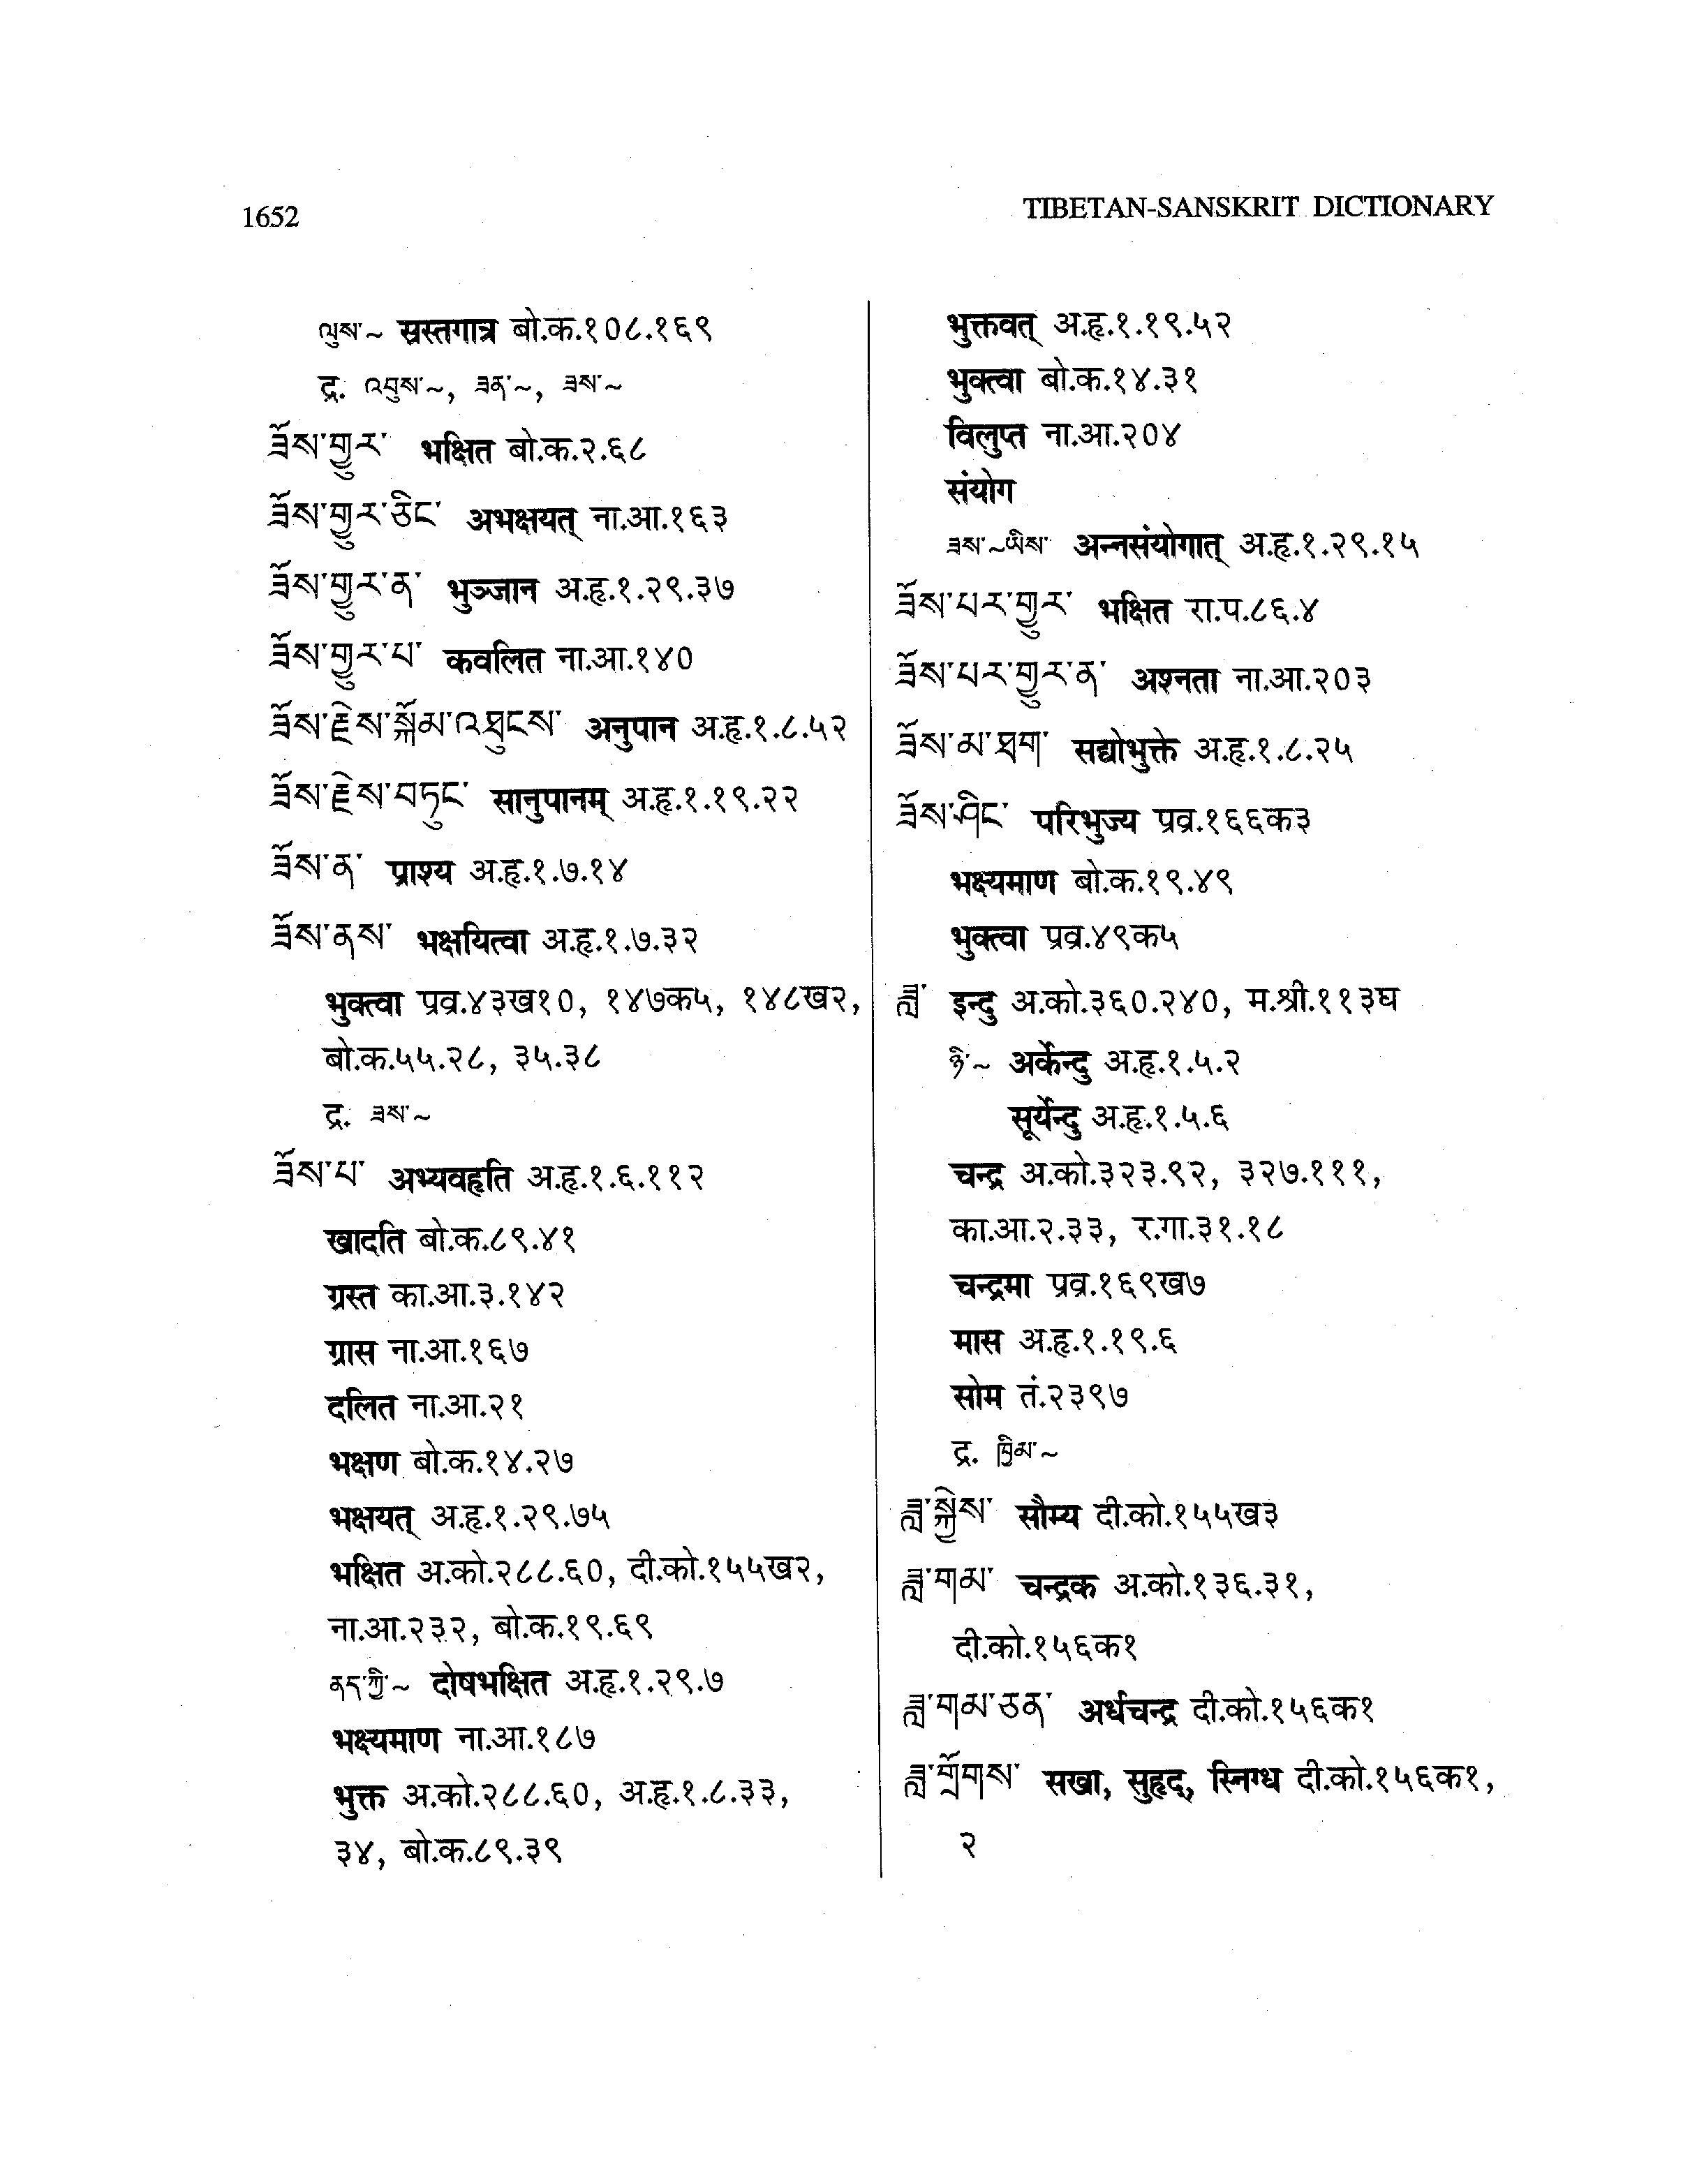 1652
TIBETAN-SANSKRIT DICTIONARY
ལུས་~ स्रस्तगात्र बो.क.१०८.१६९
द्र. འབུས་~, ཟན་~, ཟས་~
ཟོས་གྱུར་ भक्षित बो.क.२.६८
ཟོས་གྱུར་ཅིང་ अभक्षयत् ना.आ.१६३
ཟོས་གྱུར་ན་ भुञ्जान अ.हृ.१.२९.३७
ཟོས་གྱུར་པ་ कवलित ना.आ.१४०
ཟོས་རྗེས་སྐོམ་འཐུངས་ अनुपान अ.हृ.१.८.५२
ཟོས་རྗེས་བཏུང་ सानुपानम् अ.हृ.१.१९.२२
ཟོས་ན་ प्राश्य अ.हृ.१.७.१४
ཟོས་ནས་ भक्षयित्वा अ.हृ.१.७.३२
भुक्त्वा प्रव्र.४३ख१०, १४७क५, १४८ख२,
बो.क.५५.२८, ३५.३८
द्र. ཟས་~
ཟོས་པ་ अभ्यवहृति अ.हृ.१.६.११२
खादति बो.क.८९.४१
ग्रस्त का.आ.३.१४२
ग्रास ना.आ.१६७
दलित ना.आ.२१
भक्षण बो.क.१४.२७
भक्षयत् अ.हृ.१.२९.७५
भक्षित अ.को.२८८.६०, दी.को.१५५ख२,
ना.आ.२३२, बो.क.१९.६९
ནད་ཀྱི་~ दोषभक्षित अ.हृ.१.२९.७
भक्ष्यमाण ना.आ.१८७
भुक्त अ.को.२८८.६०, अ.हृ.१.८.३३,
३४, बो.क.८९.३९
भुक्तवत् अ.हृ.१.१९.५२
भुक्त्वा बो.क.१४.३१
विलुप्त ना.आ.२०४
संयोग
ཟས་~ཡིས་ अन्नसंयोगात् अ.हृ.१.२९.१५
ཟོས་པར་གྱུར་ भक्षित रा.प.८६.४
ཟོས་པར་གྱུར་ན་ अश्नता ना.आ.२०३
ཟོས་མ་ཐག་ सद्योभुक्ते अ.हृ.१.८.२५
ཟོས་ཤིང་ परिभुज्य प्रव्र.१६६क३
भक्ष्यमाण बो.क.१९.४९
भुक्त्वा प्रव्र.४९क५
ཟླ་ इन्दु अ.को.३६०.२४०, म.श्री.११३घ
ཉི་~ अर्केन्दु अ.हृ.१.५.२
सूर्येन्दु अ.हृ.१.५.६
चन्द्र अ.को.३२३.९२, ३२७.१११,
का.आ.२.३३, र.गा.३१.१८
चन्द्रमा प्रव्र.१६९ख७
मास अ.हृ.१.१९.६
सोम तं.२३९७
द्र. ཁྲིམ་~
ཟླ་སྐྱེས་ सौम्य दी.को.१५५ख३
ཟླ་གམ་ चन्द्रक अ.को.१३६.३१,
दी.को.१५६क१
ཟླ་གམ་ཅན་ अर्धचन्द्र दी.को.१५६क१
ཟླ་གྲོགས་ सखा, सुहृद्, स्निग्ध दी.को.१५६क१,
२